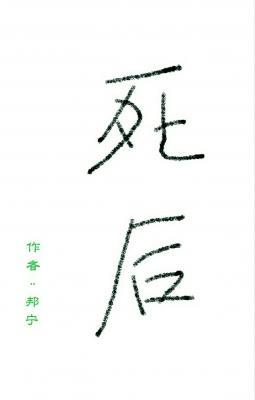 死后
作者：邦宁